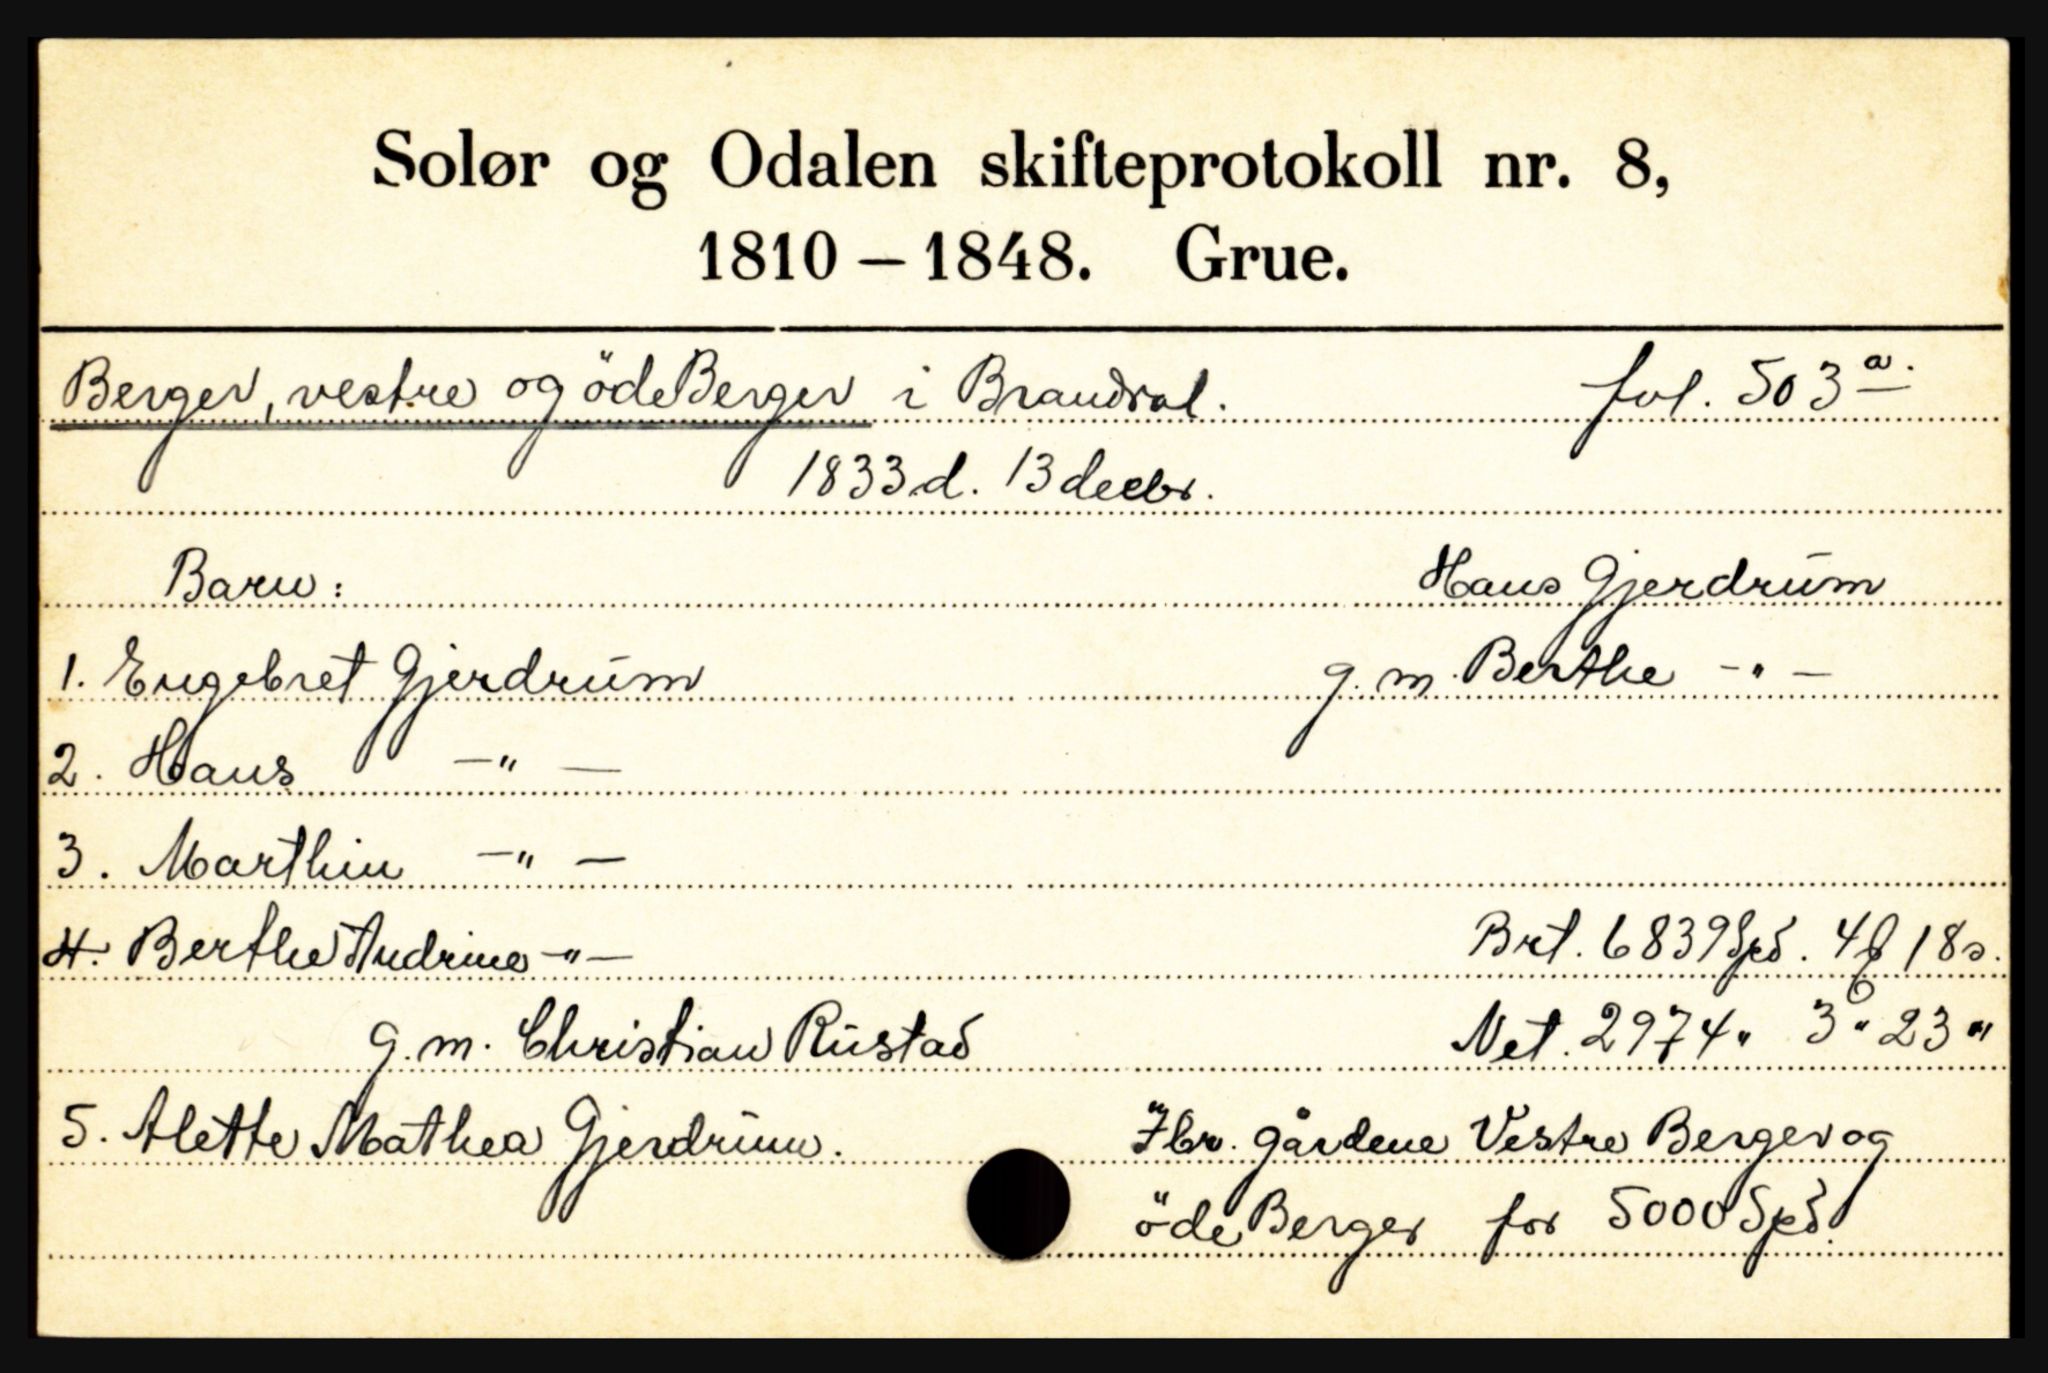 Solør og Odalen skifteprotokoll nr. 8,
1810 – 1848. Grue.
Berger, vestre og öde Berger i Brandval. fol. 503 a.
1833 d. 13 decbr.
Barn: Hans Gjerdrum
1. Engebret Gjerdrum g. m. Berthe — " —
2. Hans — " —
3. Marthin — " —
4. Berthe Andrine — " — Brt. 6839 Spd. 4 f 18 s.
g. m. Christian Rustad Net. 2974 " 3 " 23 "
5. Alette Mathea Gjerdrum. Ibr. gårdene Vestre Berger og
öde Berger for 5000 Spd.